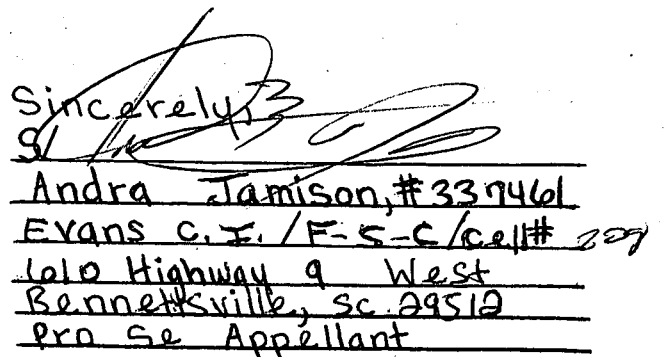 Sincerely,
S/
Andra Jamison, #337461
Evans C.I. / F-S-C/cell#
610 Highway 9 West
Bennettsville, SC. 29512
Pro Se Appellant